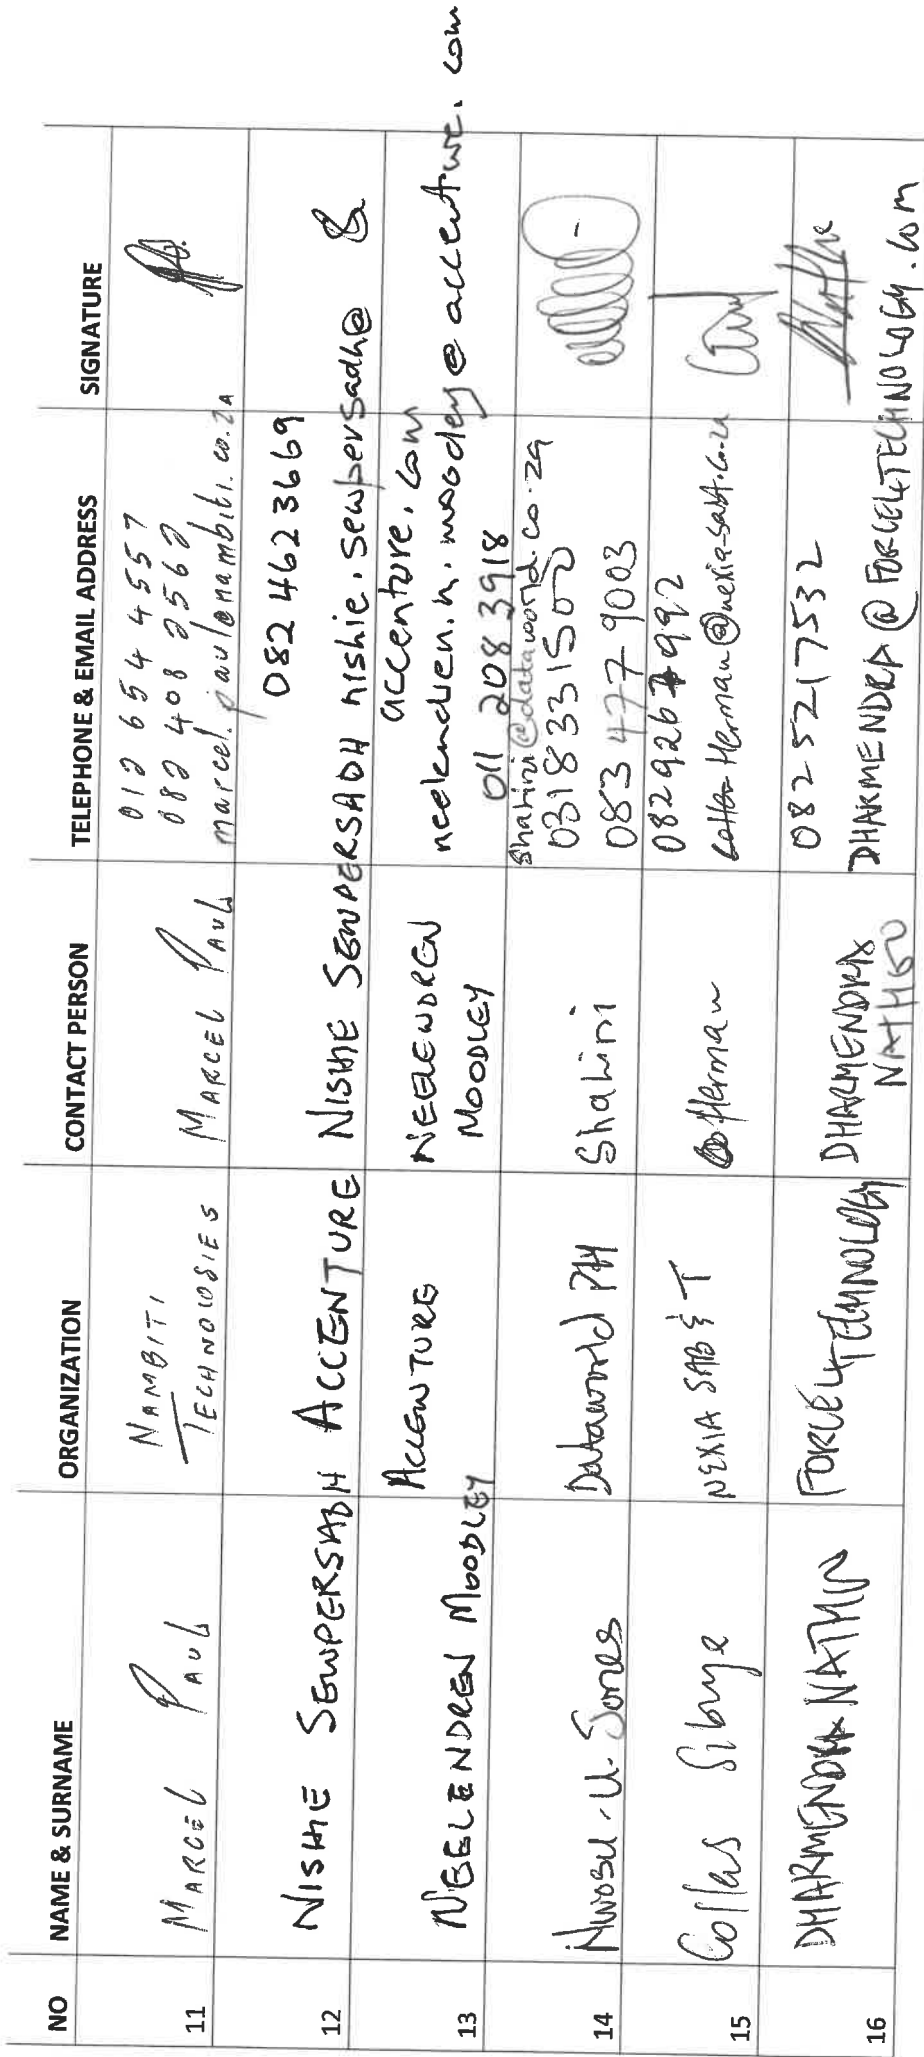 NO NAME & SURNAME ORGANIZATION CONTACT PERSON TELEPHONE & EMAIL ADDRESS SIGNATURE
11 MARCEL PAUL NAMBITI TECHNOLOGIES MARCEL PAUL
012 654 4557
082 408 2562
marcel.paul@nambiti.co.za
12 NISHIE SEWPERSADH ACCENTURE NISHIE SEWPERSADH
082 462 3669
nishie.sewpersadh@
accenture.com
13 NEELENDREN MOODLEY ACCENTURE NEELENDREN
MOODLEY
neelendren.n.moodley@accenture.com
011 208 3918
14 Nwosu-U-Jones Dataworld Shahini
shahini@dataworld.co.za
031 8331500
083 477 9003
15 Collas Sibuye NEXIA SAB&T Herman
Herman@nexia-sabt.co.za
16 DHARMENDRA NATHOO FORCE4TECHNOLOGY DHARMENDRA
NATHOO
082 5217532
DHARMENDRA@FORCE4TECHNOLOGY.COM